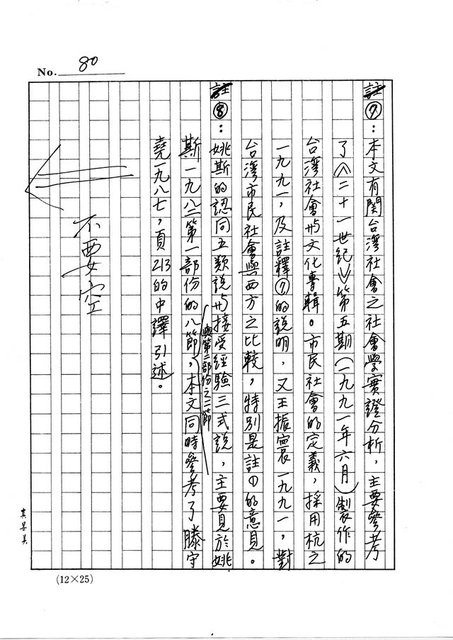 No. 80
註⑦:本文有關台灣社會之社會學實證分析,主要參考
了《二十一世紀》第五期(一九九一年六月)製作的
台灣社會與文化專輯。市民社會的定義,採用杭之
一九九一,及註釋⑦的說明,又王振寰一九九一,對
台灣市民社會與西方之比較,特別是註①的意見。
註⑧:姚斯的認同五類說與接受經驗三式說,主要見於姚
斯一九八二第一部份的八節,本文同時參考了滕守
與第二部份之二節
堯一九八七,頁213的中譯引述。
不要空
(12×25)